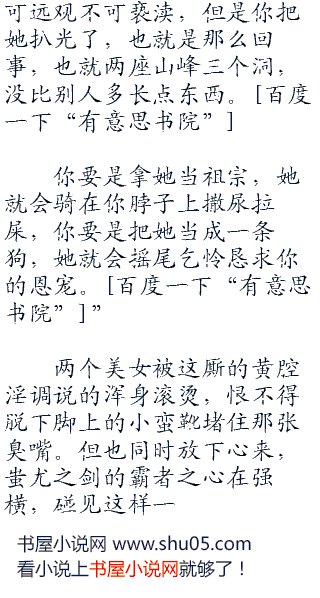 可远观不可亵渎，但是你把
她扒光了，也就是那么回
事，也就两座山峰三个洞，
没比别人多长点东西。[百度
一下“有意思书院”]
你要是拿她当祖宗，她
就会骑在你脖子上撒尿拉
屎，你要是把她当成一条
狗，她就会摇尾乞怜恳求你
的恩宠。[百度一下“有意思
书院”]”
两个美女被这厮的黄腔
淫调说的浑身滚烫，恨不得
脱下脚上的小蛮靴堵住那张
臭嘴。但也同时放下心来，
蚩尤之剑的霸者之心在强
横，碰见这样一
书屋小说网 www.shu05.com
看小说上书屋小说网就够了！